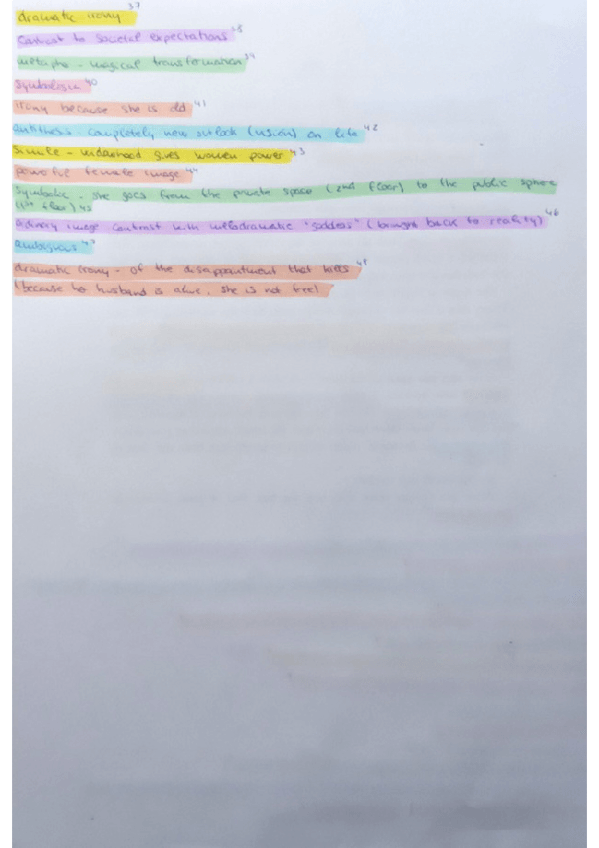 dramatic irony 37
Contrast to societal expectations 38
metapho - magical transformation 39
symbolism 40
irony because she is old 41
antithesis completely new outlook (vision) on life 42
simile - widowhood gives women power 43
powerful female image 44
symbolic - she goes from the private space (2nd floor) to the public sphere
(1st floor) 45
ordinary image contrast with melodramatic "goddess" (brought back to reality) 46
ambigious 47
dramatic irony - of the disappointment that kills 48
(because her husband is alive, she is not free)